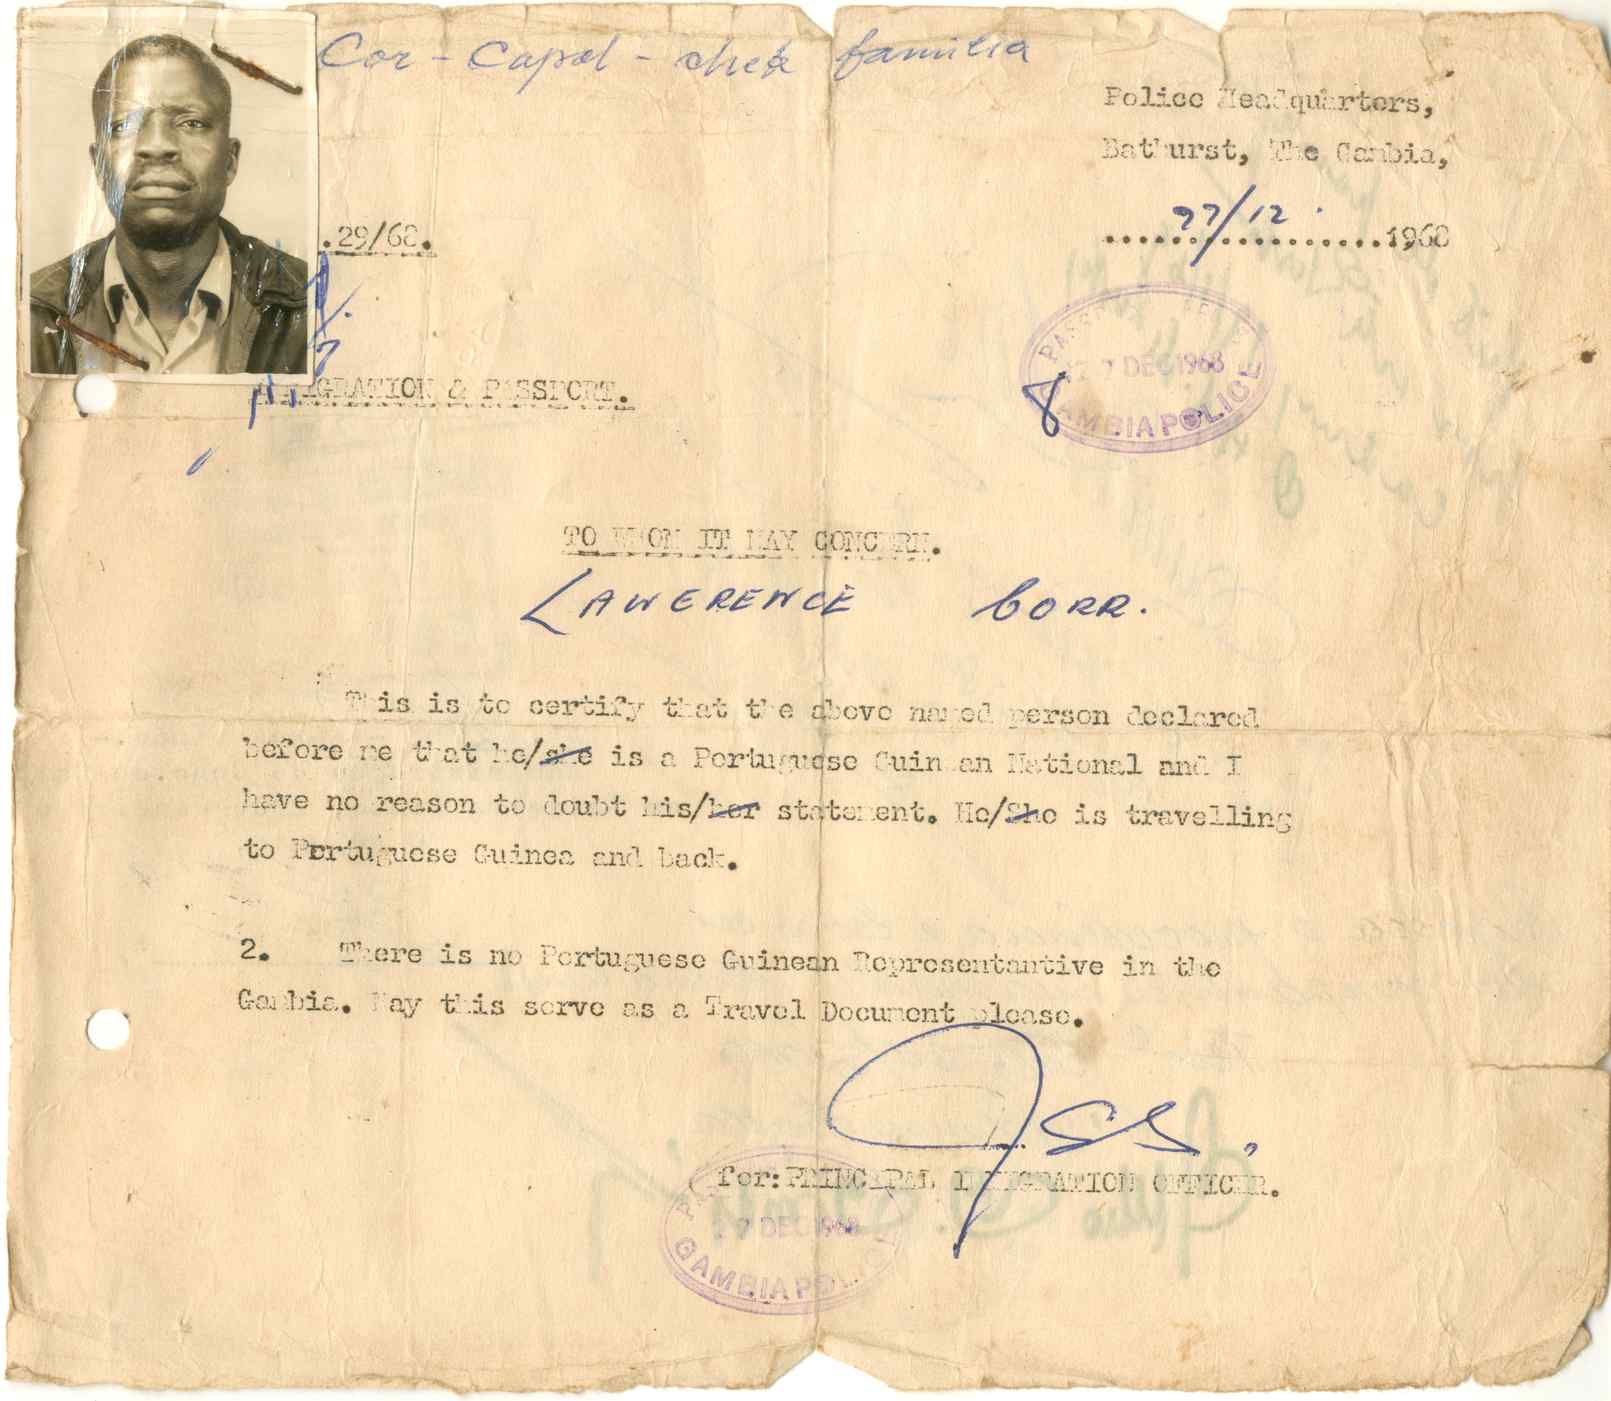 Cor - Capol - chek familia
Police Headquarters,
Bathurst, The Gambia,
27/12. 1968
.29/68.
IMMIGRATION & PASSPORT.
27 DEC 1968
GAMBIA POLICE
8
TO WHOM IT MAY CONCERN.
LAWERENCE CORR.
This is to certify that the above named person declared
before me that he/she is a Portuguese Guinean National and I
have no reason to doubt his/her statement. He/She is travelling
to Portuguese Guinea and back.
2. There is no Portuguese Guinean Representantive in the
Gambia. May this serve as a Travel Document please.
for: PRINCIPAL IMMIGRATION OFFICER.
27 DEC 1968
GAMBIA POLICE